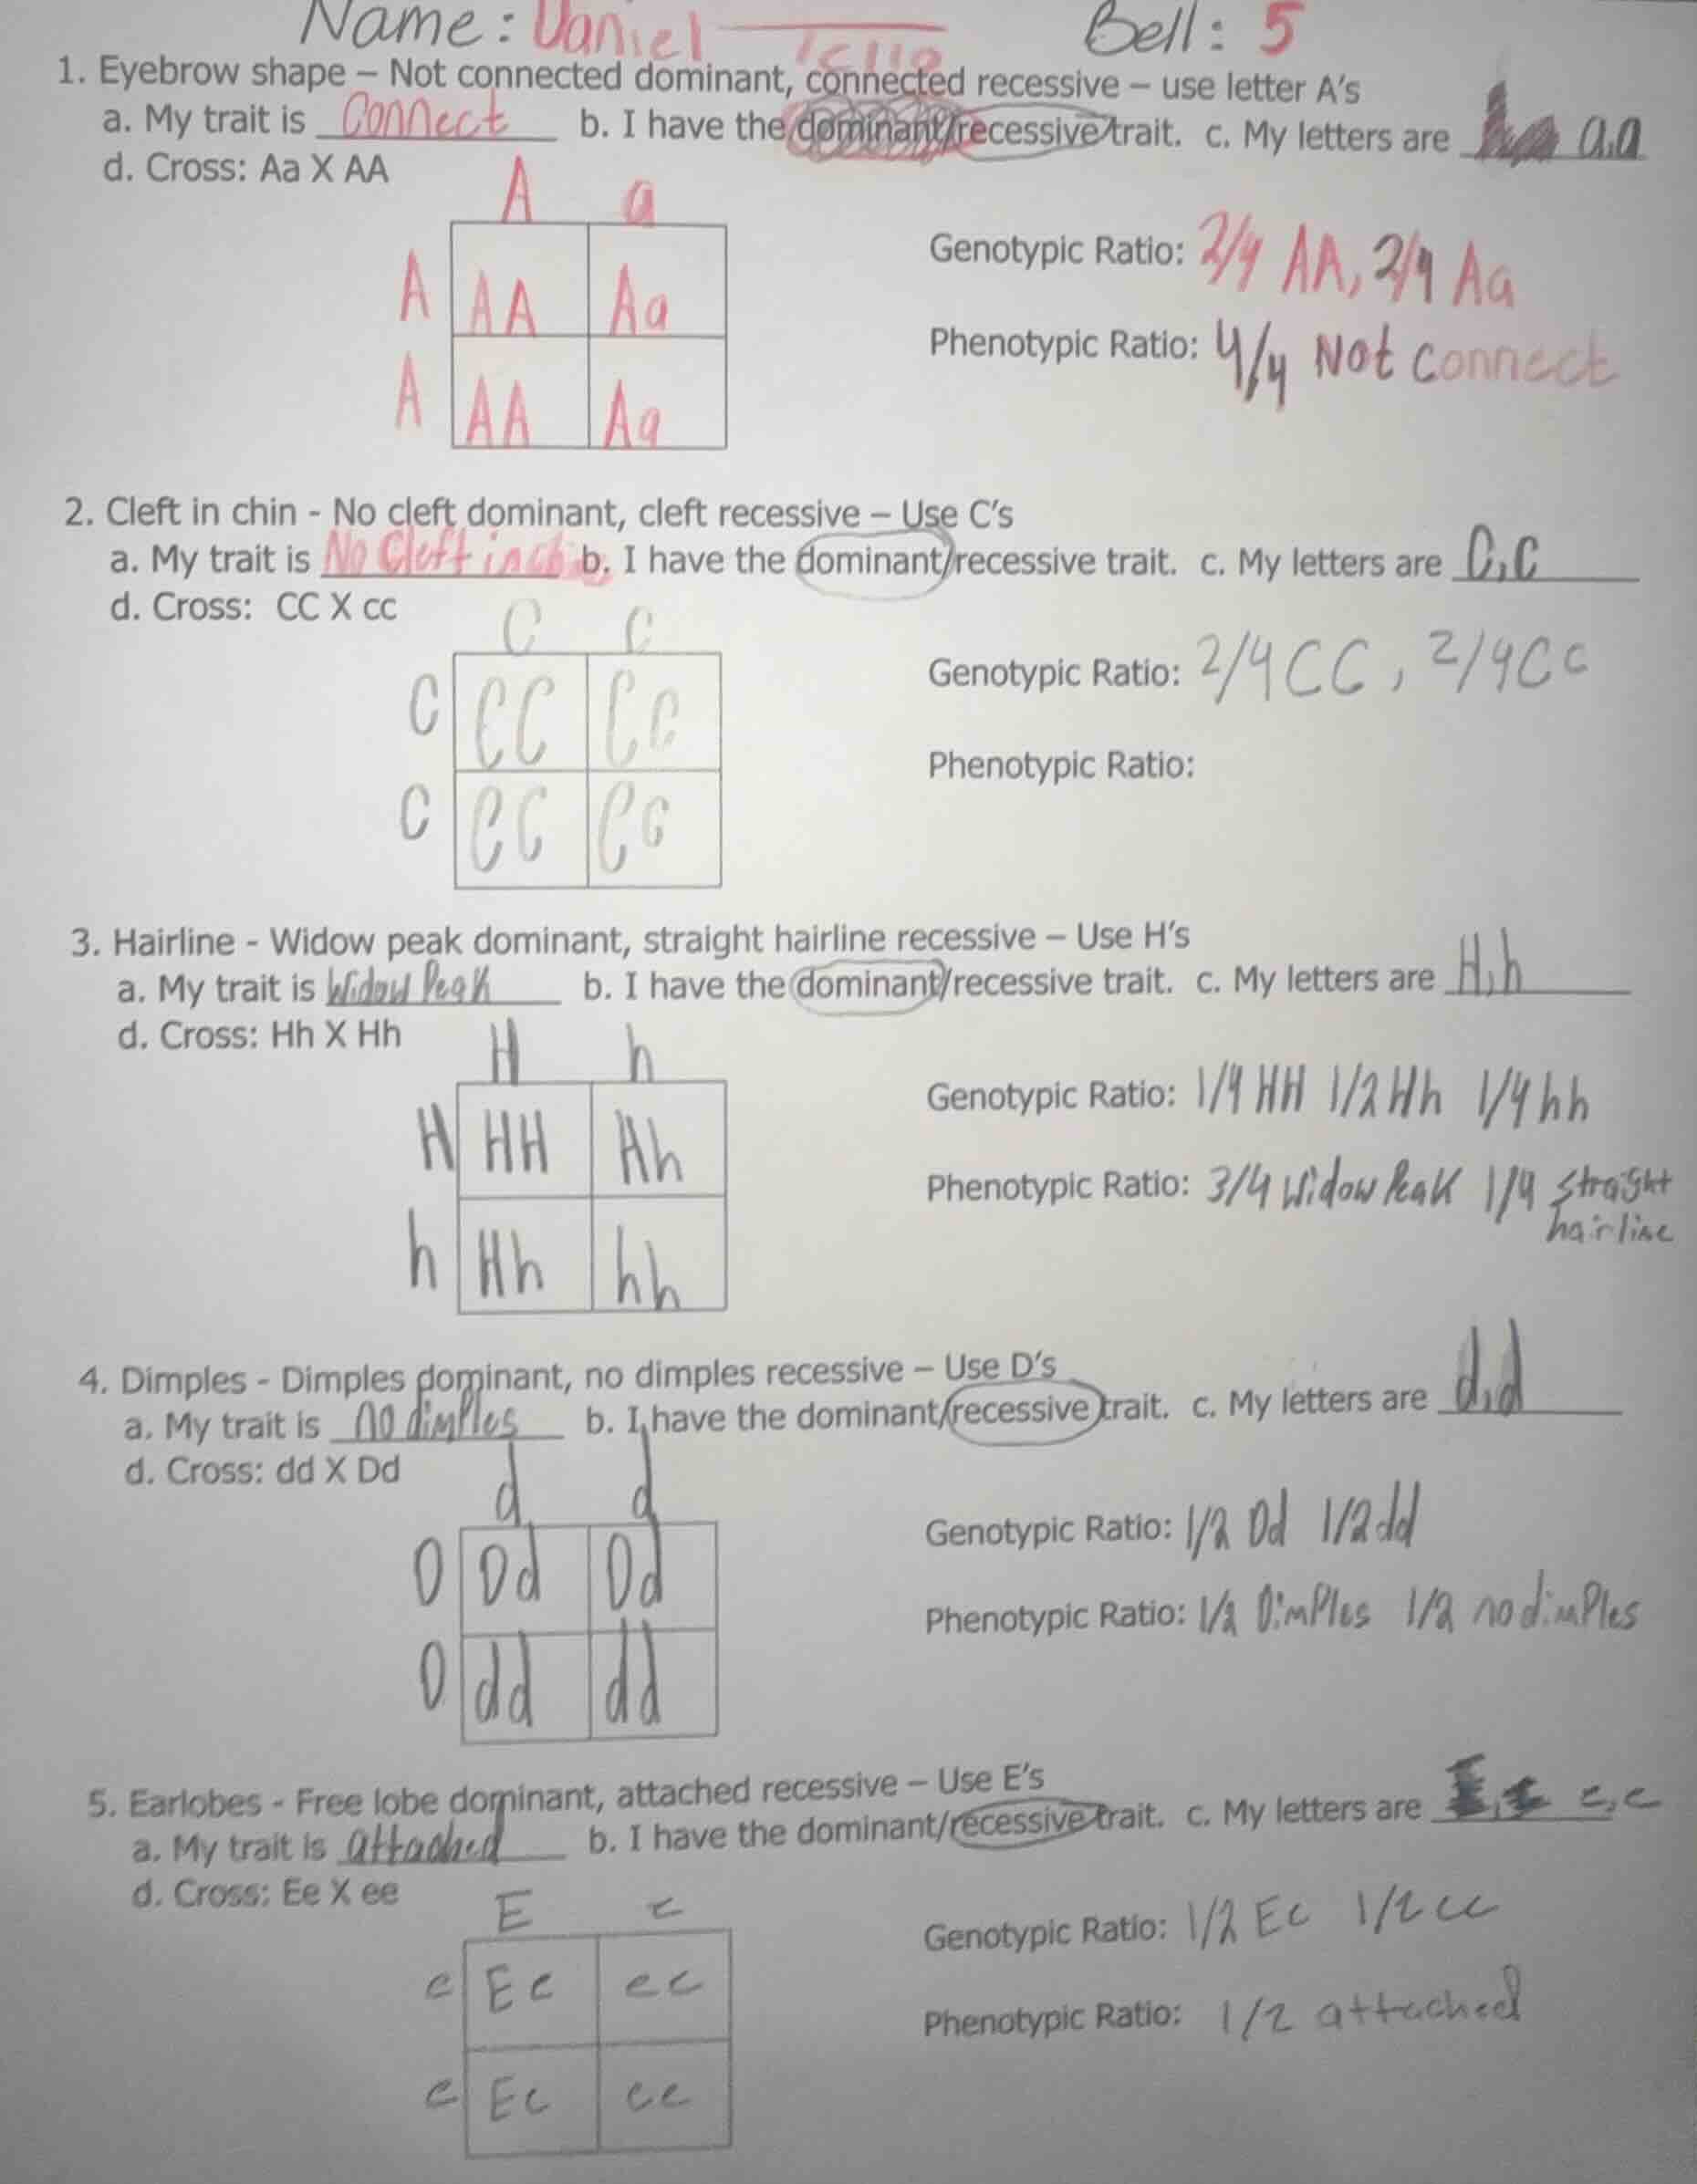 Name: Daniel Bell: 5
1. Eyebrow shape – Not connected dominant, connected recessive – use letter A's
a. My trait is Connect b. I have the dominant/recessive trait. c. My letters are a,a
d. Cross: Aa X AA
A a
Genotypic Ratio: 2/4 AA, 2/4 Aa
A AA Aa
Phenotypic Ratio: 4/4 Not connect
A AA Aa
2. Cleft in chin - No cleft dominant, cleft recessive – Use C's
a. My trait is No Cleft in chin b. I have the dominant/recessive trait. c. My letters are C,c
d. Cross: CC X cc
C c
Genotypic Ratio: 2/4 CC, 2/4 Cc
C CC Cc
Phenotypic Ratio:
C CC Cc
3. Hairline - Widow peak dominant, straight hairline recessive – Use H's
a. My trait is Widow Peak b. I have the dominant/recessive trait. c. My letters are H,h
d. Cross: Hh X Hh
H h
Genotypic Ratio: 1/4 HH 1/2 Hh 1/4 hh
H HH Hh
Phenotypic Ratio: 3/4 Widow Peak 1/4 straight
hairline
h Hh hh
4. Dimples - Dimples dominant, no dimples recessive – Use D's
a. My trait is no dimples b. I have the dominant/recessive trait. c. My letters are d,d
d. Cross: dd X Dd
d d
Genotypic Ratio: 1/2 Dd 1/2 dd
D Dd Dd
Phenotypic Ratio: 1/2 Dimples 1/2 no dimples
D dd dd
5. Earlobes - Free lobe dominant, attached recessive – Use E's
a. My trait is attached b. I have the dominant/recessive trait. c. My letters are e,e
d. Cross: Ee X ee
E e
Genotypic Ratio: 1/2 Ee 1/2 ee
e Ee ee
Phenotypic Ratio: 1/2 attached
e Ee ee